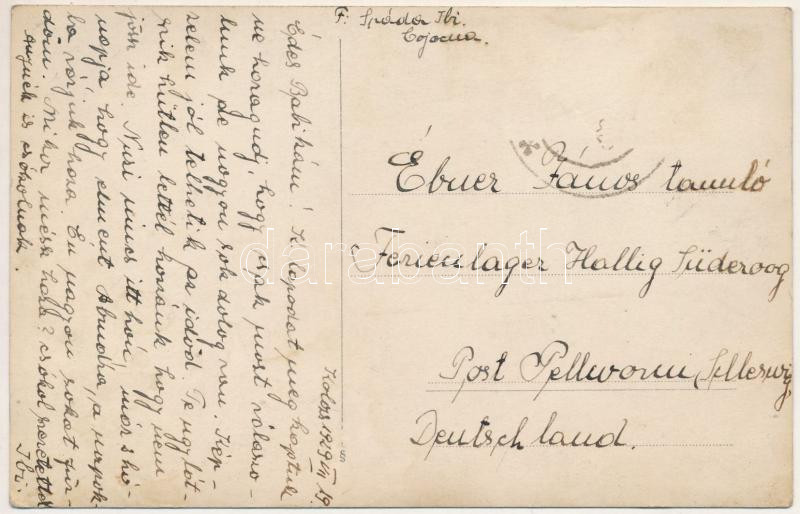 F: Spáda Ibi.
Cojocna.
Kolozs 1929 VII 19.
Édes Babikám! K. lapodat meg kaptuk
ne haragudj, hogy csak most válaszo-
lunk de nagyon sok dolog van. Kép-
zelem jól telhetik az idöd. Te ugy lát-
szik hütlen lettél hozzánk hogy nem
jösz ide. Nusi nincs itt hón, más s hó-
napja hogy elment Abrudra, a napok-
ba várjuk haza. Én nagyon sokat für-
döm. Mikor mész haza? csókol szeretettel
Ibi.
Anyuék is csókolnak.
Ébner János tanuló
Ferienlager Hallig Süderoog
Post Pellworm, Schleswig
Deutschland.
darabanth